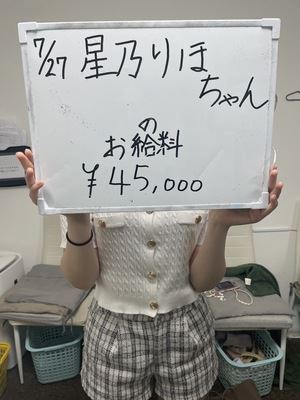 7/27 星乃りほ
ちゃん
の
お給料
¥45,000